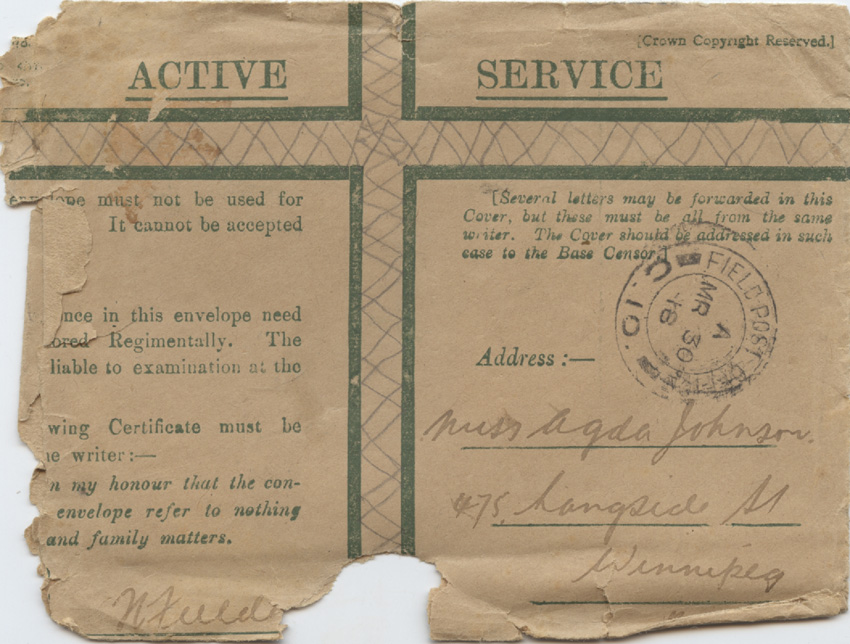 [Crown Copyright Reserved.]
ACTIVE SERVICE
must not be used for
It cannot be accepted
nce in this envelope need
ored Regimentally. The
liable to examination at the
wing Certificate must be
e writer:—
n my honour that the con-
envelope refer to nothing
and family matters.
[Several letters may be forwarded in this
Cover, but these must be all from the same
writer. The Cover should be addressed in such
case to the Base Censor.]
FIELD POST OFFICE
C.10.
A
MR 30
18
Address :—
Miss Agda Johnson.
475, Langside St
Winnipeg